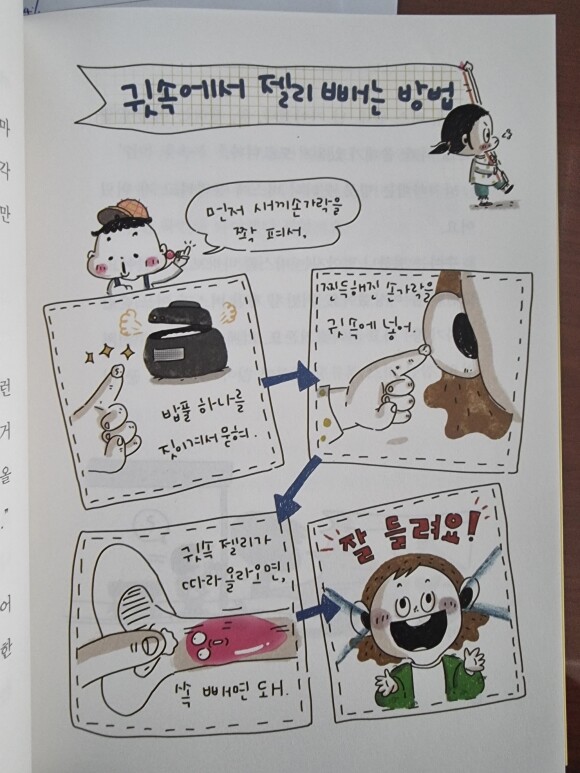 귓속에서 젤리 빼는 방법
먼저 새끼손가락을
쫙 펴서,
밥풀 하나를
짓이겨서 묻혀.
찐득해진 손가락을
귓속에 넣어.
귓속 젤리가
따라 올라오면,
쏙 빼면 돼.
잘 들려요!
마
각
만
런
거
을
."
어
한